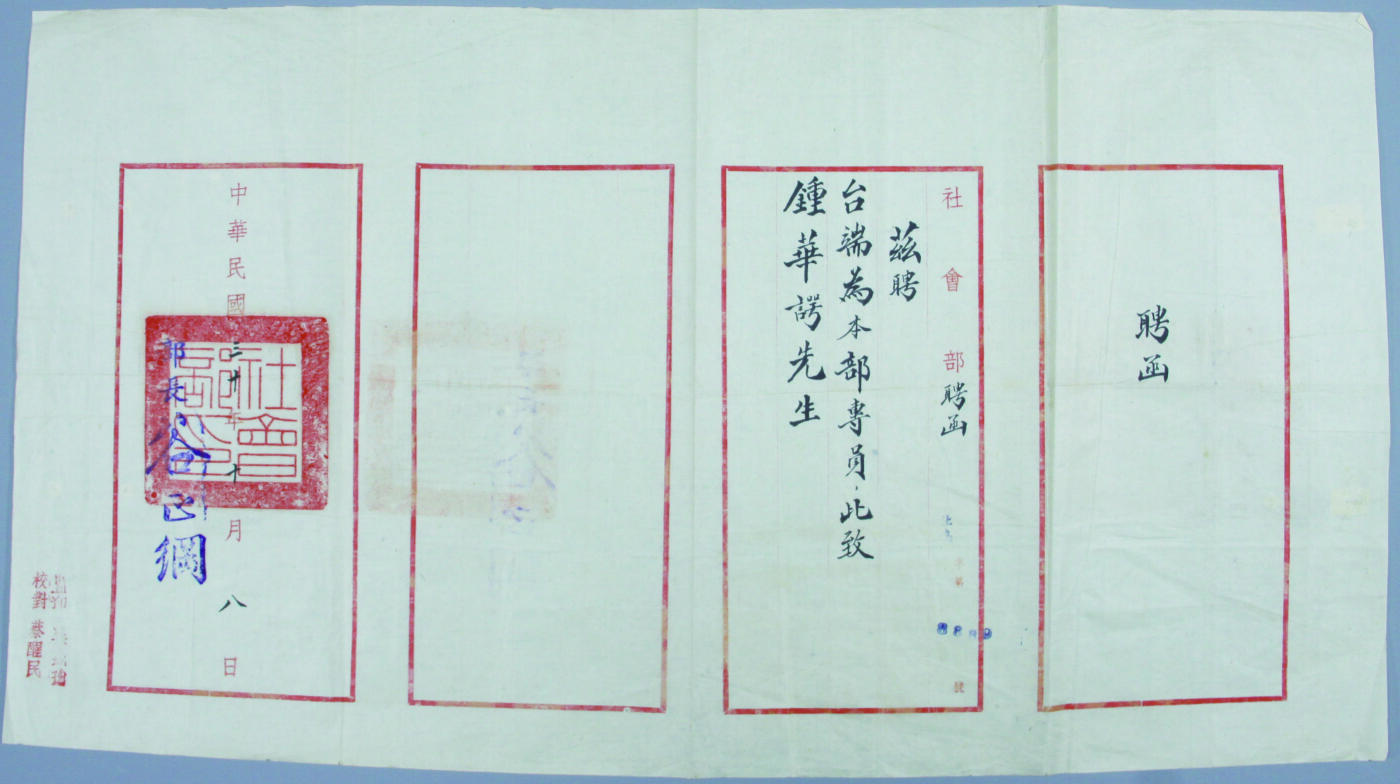 聘函
社會部聘函
字第
號
茲聘
台端為本部專員，此致
鍾華諤先生
中華民國三十年十月八日
社會部印
部長谷正綱
監印
校對蔡醒民